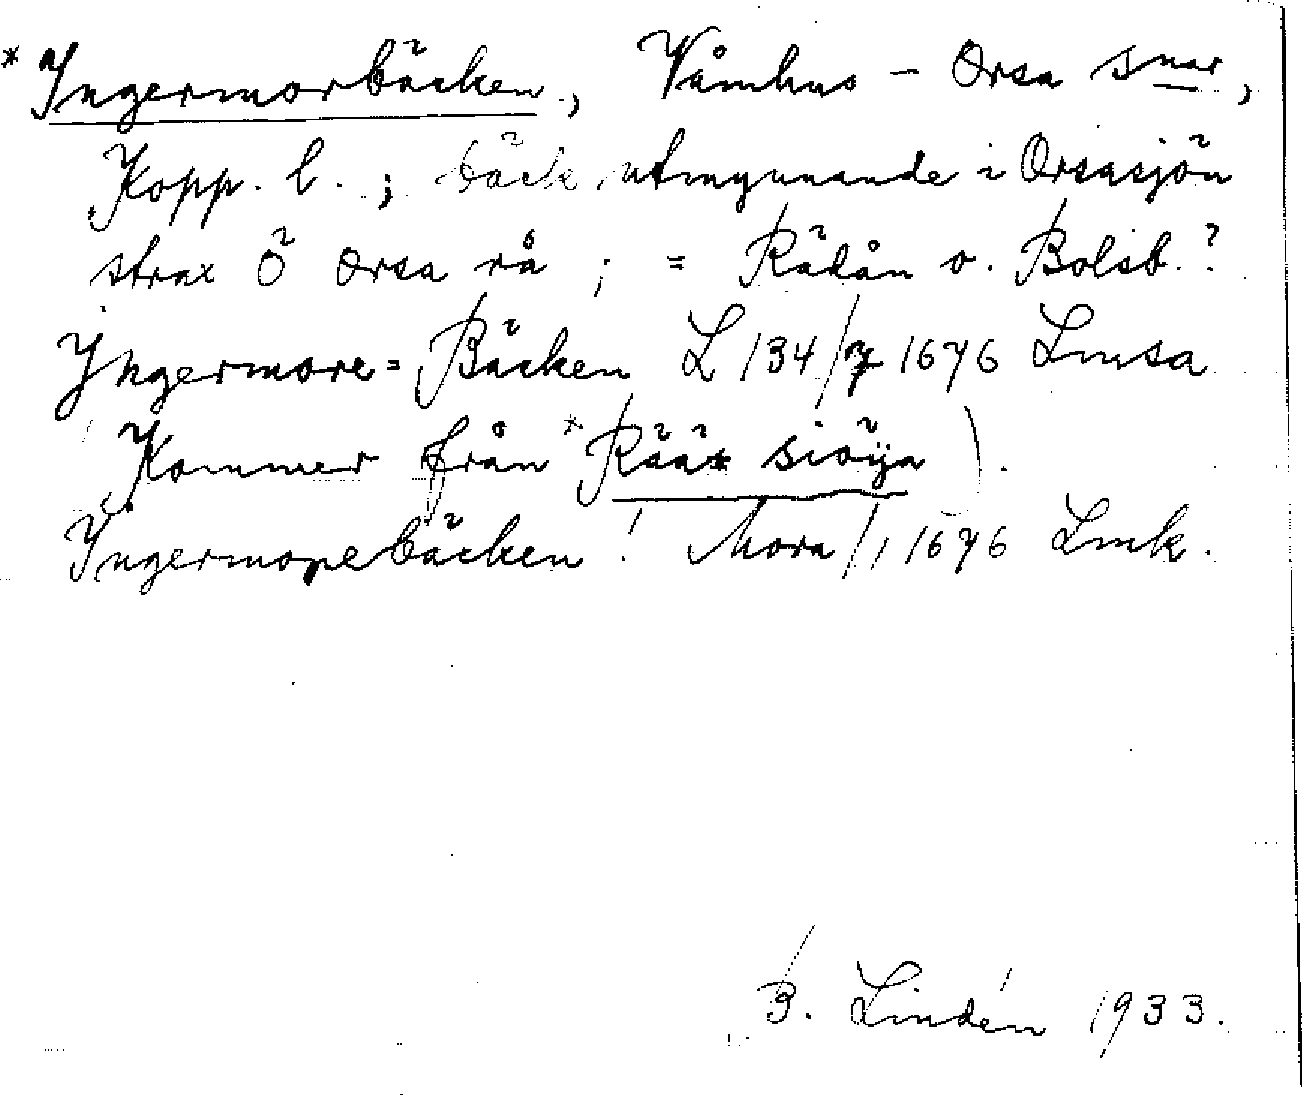 *Ingermorbäcken, Våmhus – Orsa snar,
Kopp. l. ; bäck utmynnande i Orsasjön
strax Ö Orsa rå ; = Rädån o. Bolsb. ?
Yngermore=Bäcken L 134/7 1676 Lmsa
(Kommer från *Rää sioÿn).
Yngermorebäcken ! Mora /1 1676 Lmk.
B. Lindén 1933.